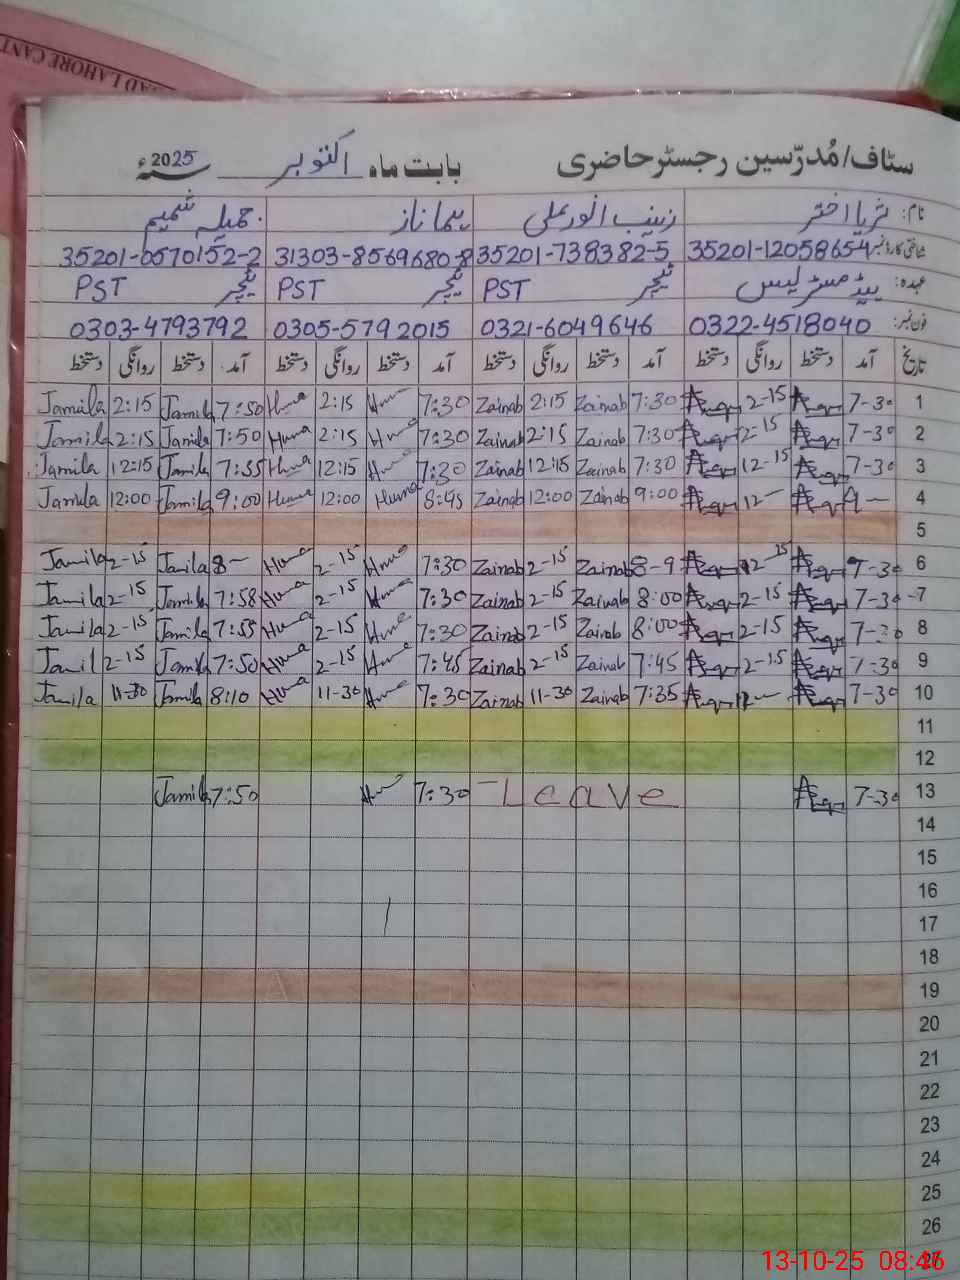 AD LAHORE CANT
سٹاف/مُدرّسین رجسٹر حاضری بابت ماہ اکتوبر سنہ 2025ء
نام: ثریا اختر زینب انور علی ہما ناز جمیلہ شمیم
شناختی کارڈ نمبر 35201-1205865-4 35201-738382-5 31303-8569680-8 35201-0570152-2
عہدہ: ہیڈ مسٹریس ٹیچر PST ٹیچر PST ٹیچر PST
فون نمبر: 0322-4518040 0321-6049646 0305-5792015 0303-4793792
تاریخ آمد دستخط روانگی دستخط آمد دستخط روانگی دستخط آمد دستخط روانگی دستخط آمد دستخط روانگی دستخط
Jamila 2:15 Jamila 7:50 Huma 2:15 Huma 7:30 Zainab 2:15 Zainab 7:30 2-15 7-30 1
Jamila 2:15 Jamila 7:50 Huma 2:15 Huma 7:30 Zainab 2:15 Zainab 7:30 2-15 7-30 2
Jamila 12:15 Jamila 7:55 Huma 12:15 Huma 7:30 Zainab 12:15 Zainab 7:30 12-15 7-30 3
Jamila 12:00 Jamila 9:00 Huma 12:00 Huma 8:45 Zainab 12:00 Zainab 9:00 12- 9- 4
5
Jamila 2-15 Jamila 8- Huma 2-15 Huma 7:30 Zainab 2-15 Zainab 8-9 2-15 7-30 6
Jamila 2-15 Jamila 7:58 Huma 2-15 Huma 7:30 Zainab 2-15 Zainab 8:00 2-15 7-30 7
Jamila 2-15 Jamila 7:55 Huma 2-15 Huma 7:30 Zainab 2-15 Zainab 8:00 2-15 7-30 8
Jamil 2-15 Jamila 7:50 Huma 2-15 Huma 7:45 Zainab 2-15 Zainab 7:45 2-15 7-30 9
Jamila 11-30 Jamila 8:10 Huma 11-30 Huma 7:30 Zainab 11-30 Zainab 7:35 7-30 10
11
12
Jamila 7:50 7:30 Leave 7-30 13
14
15
16
17
18
19
20
21
22
23
24
25
26
13-10-25 08:46